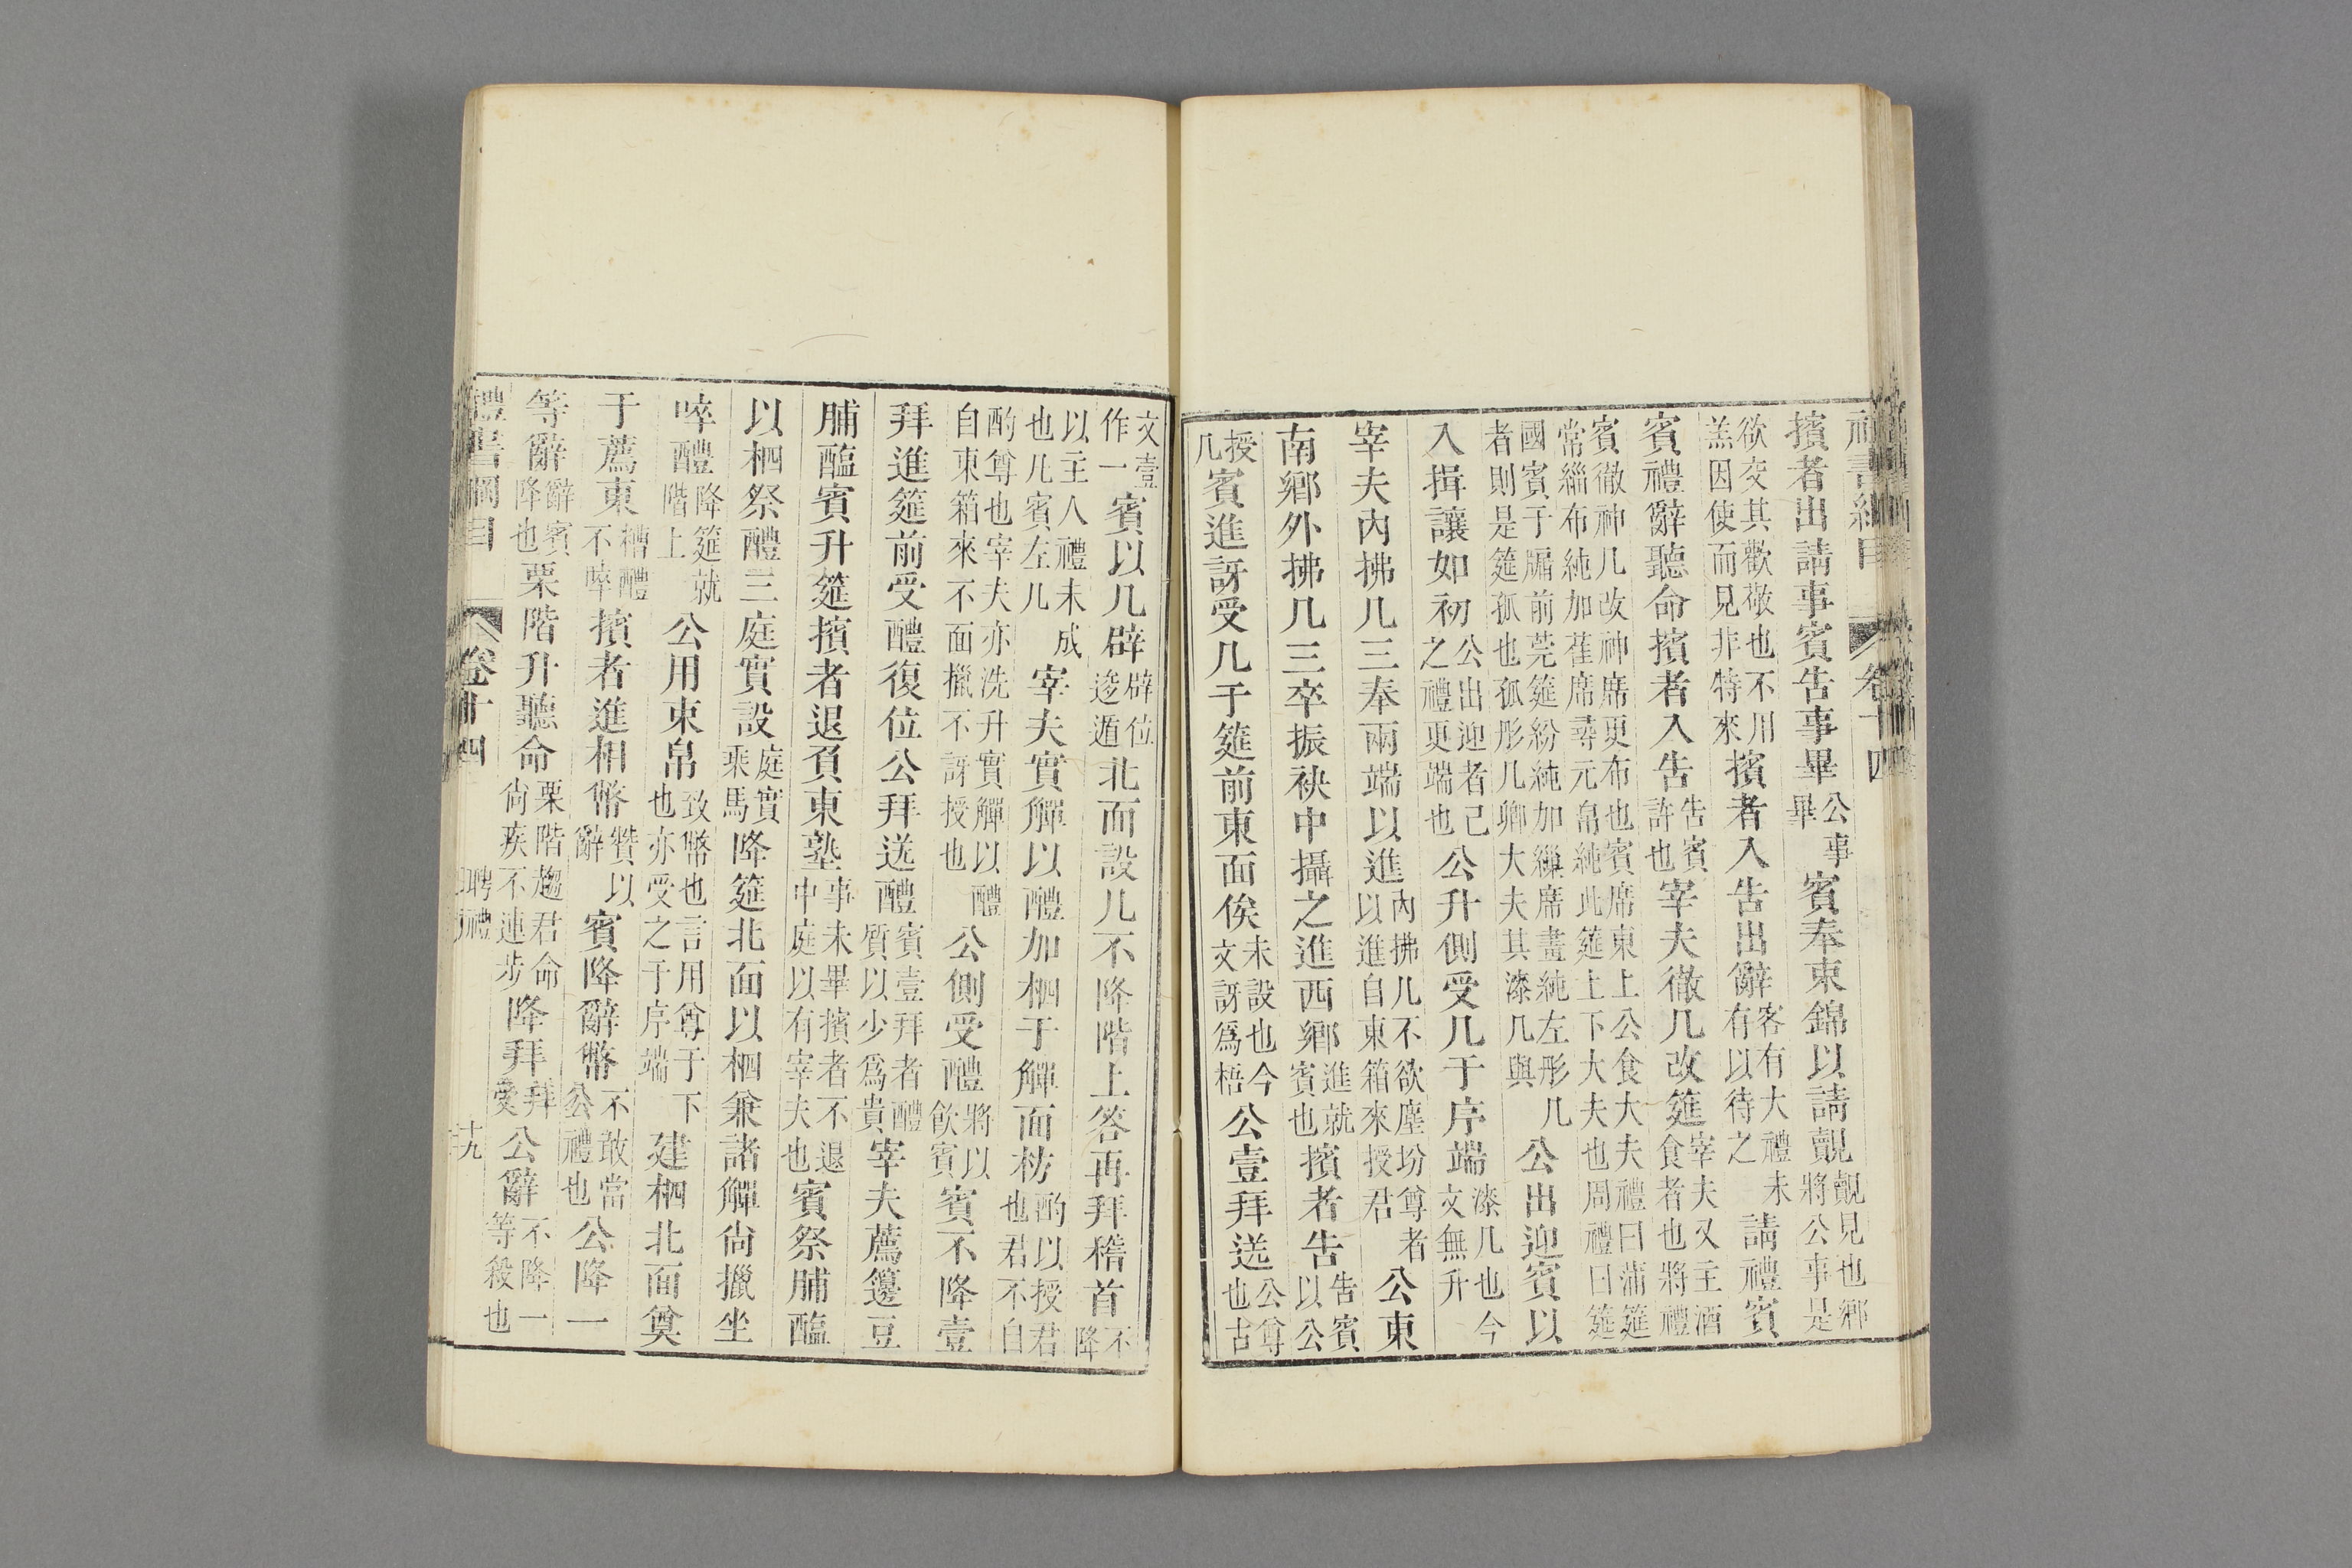 禮書綱目 卷十四
擯者出請事賓告事畢公事畢賓奉束錦以請覿覿見也鄉將公事是
欲交其歡敬也不用羔因使而見非特來擯者入告出辭客有大禮未有以待之請禮賓
賓禮辭聽命擯者入告告賓許也宰夫徹几改筵宰夫又主酒食者也將禮
賓徹神几改神席更布也賓席東上公食大夫禮曰蒲筵常緇布純加萑席尋元帛純此筵上下大夫也周禮曰筵
國賓于牖前莞筵紛純加繅席畫純左彤几者則是筵孤也孤彤几卿大夫其漆几與公出迎賓以
入揖讓如初公出迎者己之禮更端也公升側受几于序端漆几也今文無升
宰夫內拂几三奉兩端以進內拂几不欲塵坋尊者以進自東箱來授君公東
南鄉外拂几三卒振袂中攝之進西鄉進就賓也擯者告告賓以公
授几賓進訝受几于筵前東面俟未設也今文訝爲梧公壹拜送公尊也古
文壹作一賓以几辟辟位逡遁北面設几不降階上答再拜稽首不降
以主人禮未成也凡賓左几宰夫實觶以醴加柶于觶面枋酌以授君也君不自
酌尊也宰夫亦洗升實觶以醴自東箱來不面擸不訝授也公側受醴將以飲賓賓不降壹
拜進筵前受醴復位公拜送醴賓壹拜者醴質以少爲貴宰夫薦籩豆
脯醢賓升筵擯者退負東塾事未畢擯者不退中庭以有宰夫也賓祭脯醢
以柶祭醴三庭實設庭實乘馬降筵北面以柶兼諸觶尙擸坐
啐醴降筵就階上公用束帛致幣也言用尊于下也亦受之于序端建柶北面奠
于薦東糟醴不啐擯者進相幣贊以辭賓降辭幣不敢當公禮也公降一
等辭辭賓降也栗階升聽命栗階趨君命尙疾不連步降拜拜受公辭不降一等殺也
禮書綱目 卷十四 聘禮 十九